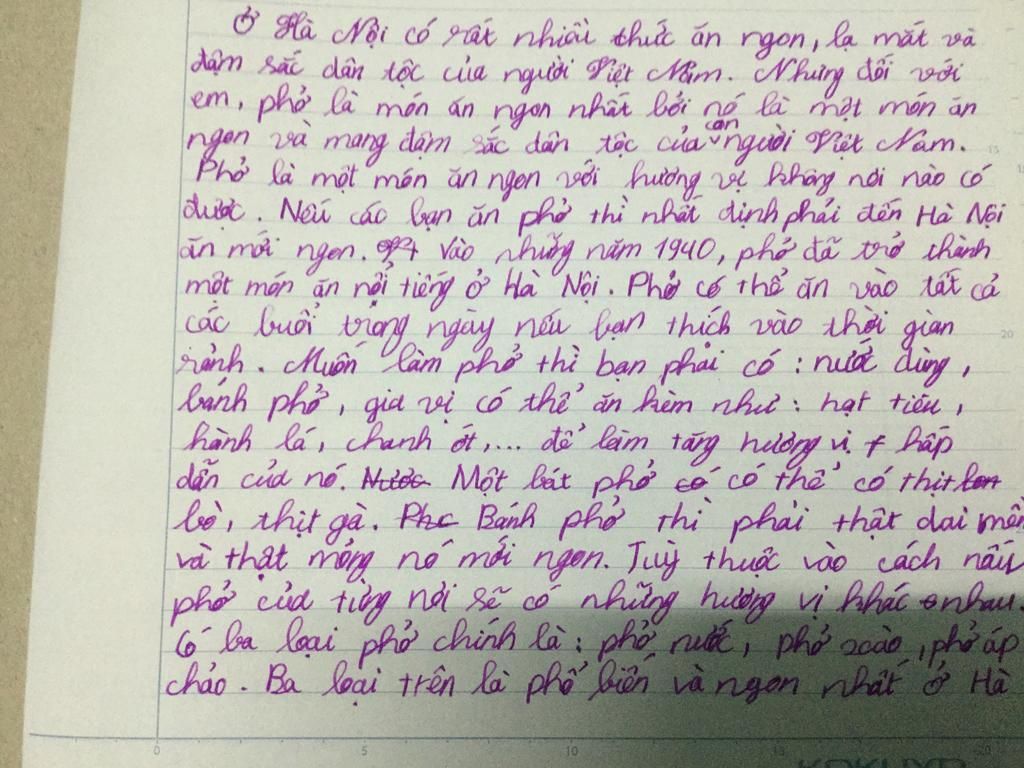 Ở Hà Nội có rất nhiều thức ăn ngon, lạ mắt và
đậm sắc dân tộc của người Việt Nam. Nhưng đối với
em, phở là món ăn ngon nhất bởi nó là một món ăn
ngon và mang đậm sắc dân tộc của con người Việt Nam.
Phở là một món ăn ngon với hương vị không nơi nào có
được. Nếu các bạn ăn phở thì nhất định phải đến Hà Nội
ăn mới ngon. Vào những năm 1940, phở đã trở thành
một món ăn nổi tiếng ở Hà Nội. Phở có thể ăn vào tất cả
các buổi trong ngày nếu bạn thích vào thời gian
rảnh. Muốn làm phở thì bạn phải có : nước dùng,
bánh phở, gia vị có thể ăn kèm như : hạt tiêu,
hành lá, chanh ớt,... để làm tăng hương vị + hấp
dẫn của nó. Nước Một bát phở có có thể có thịt lợn
bò, thịt gà. Phở Bánh phở thì phải thật dai mền
và thật mỏng nó mới ngon. Tuỳ thuộc vào cách nấu
phở của từng nơi sẽ có những hương vị khác nhau.
Có ba loại phở chính là : phở nước, phở xào, phở áp
chảo. Ba loại trên là phổ biến và ngon nhất ở Hà
0 5 10 15 20
KOKUYO